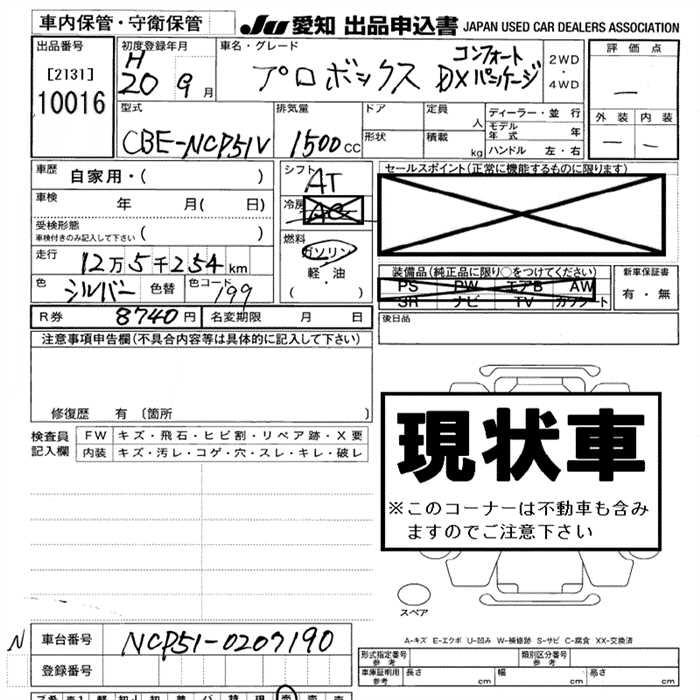 車内保管・守衛保管 JU 愛知 出品申込書 JAPAN USED CAR DEALERS ASSOCIATION
出品番号
[2131]
10016
初度登録年月
H
20 9 月
車名・グレード
プロボックス コンフォート
DXパッケージ
2WD
・
4WD
評価点
—
外装 内装
— —
型式
CBE-NCP51V
排気量
1500 CC
ドア
形状
定員
人
積載
kg
ディーラー・並行
モデル
年式 年
ハンドル 左・右
車歴 自家用・( )
車検 年 月( 日)
受検形態
車検付きのみ記入して下さい ( )
走行 12万5千254km
色 シルバー 色替 色コード 199
シフト
AT
冷房
AC
燃料
ガソリン
軽・油
( )
セールスポイント(正常に機能するものに限ります)
装備品(純正品に限り○をつけてください)
PS PW エアB AW
SR ナビ TV カワシート
新車保証書
有・無
R券 8740円 名変期限 月 日
後日品
注意事項申告欄(不具合内容等は具体的に記入して下さい)
修復歴 有 〔箇所 〕
検査員
記入欄
FW キズ・飛石・ヒビ割・リペア跡・X要
内装 キズ・汚レ・コゲ・穴・スレ・キレ・破レ
現状車
※このコーナーは不動車も含み
ますのでご注意下さい
スペア
A-キズ E-エクボ U-凹み W-補修跡 S-サビ C-腐食 XX-交換済
N 車台番号 NCP51-0207190
登録番号
型式指定番号
参考
類別区分番号
参考
車庫証明用
参考
長さ cm 幅 cm 高さ cm